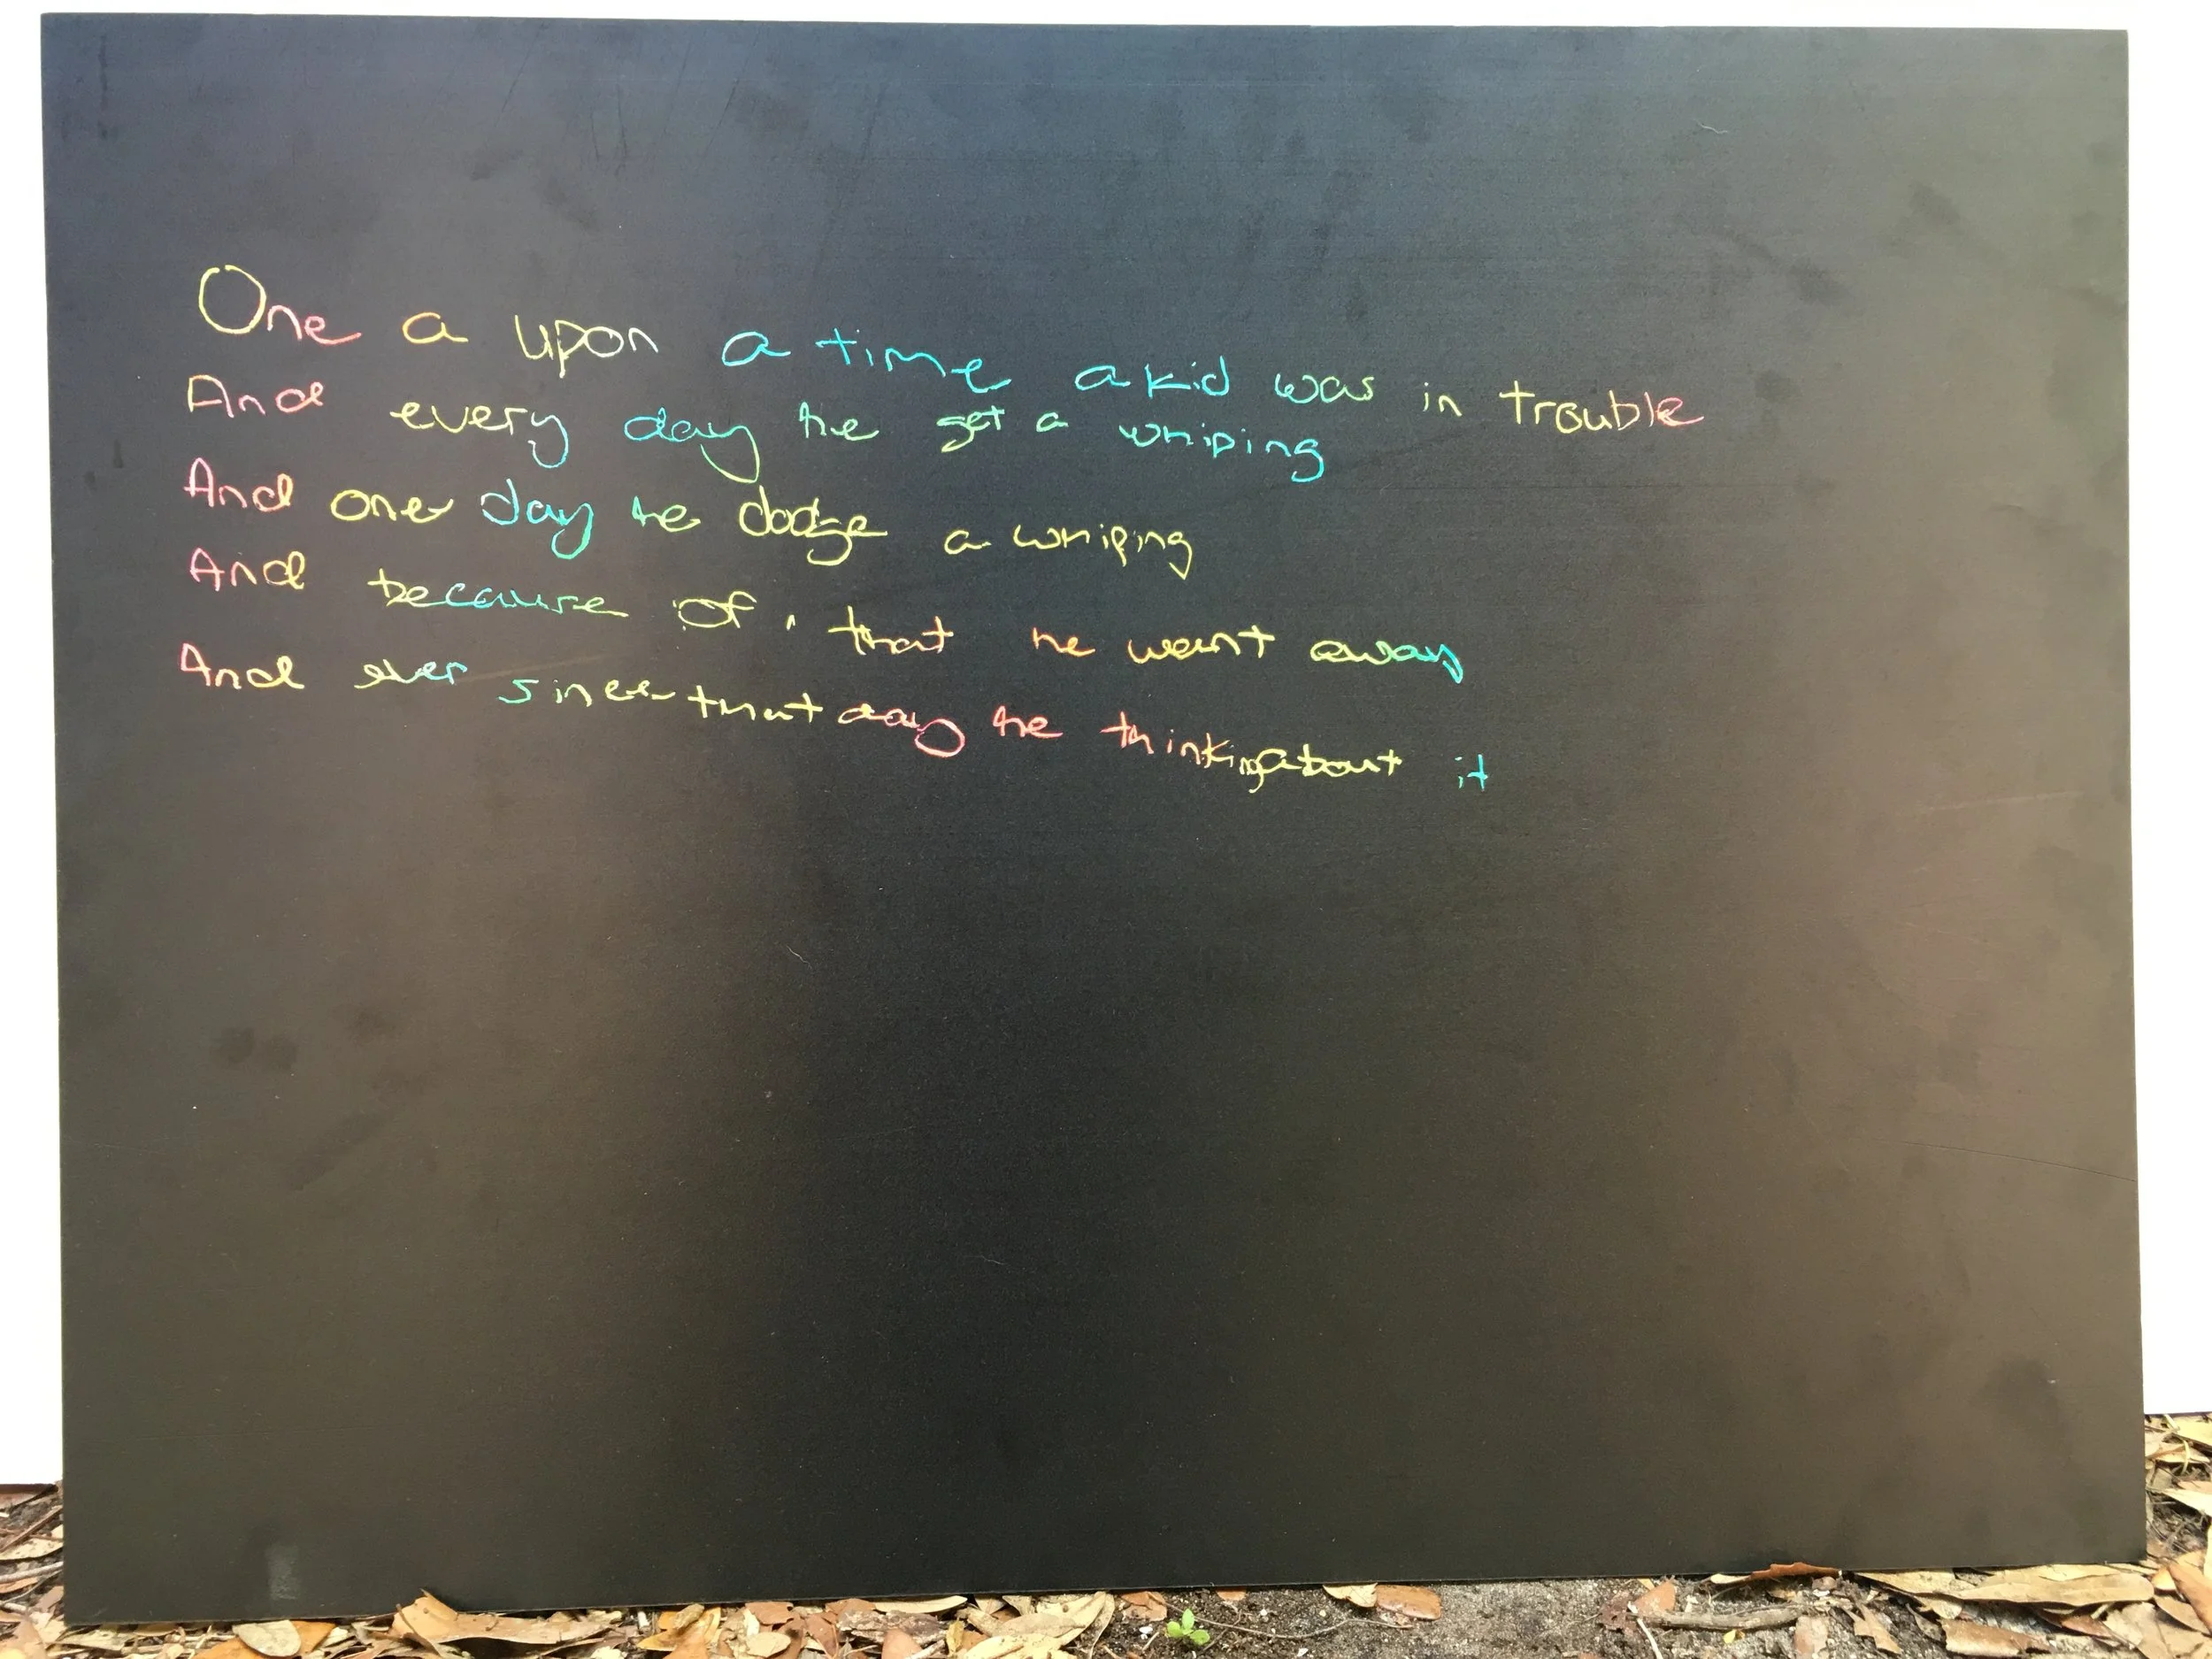 One a upon a time a kid was in trouble
And every day he get a whiping
And one day he dodge a whiping
And because of that he went away
And ever since that day he thinking about it